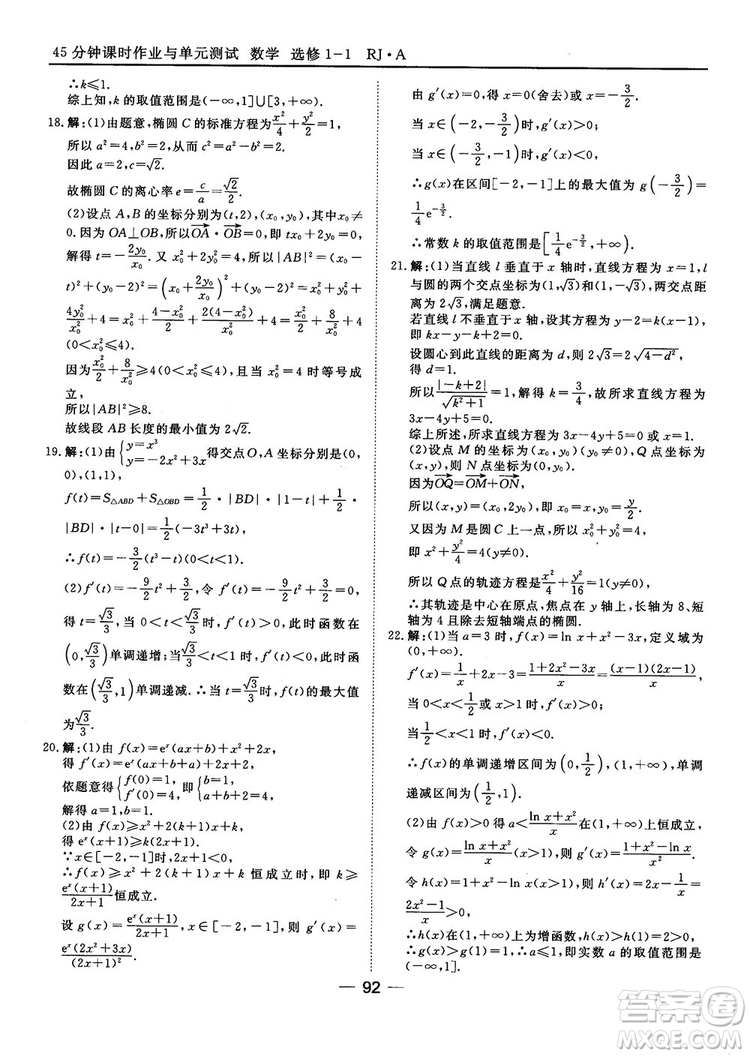 45分钟课时作业与单元测试 数学 选修1-1 RJ·A
∴k≤1.
综上知,k的取值范围是(-∞,1]∪[3,+∞).
18.解:(1)由题意,椭圆C的标准方程为x²/4+y²/2=1,
所以a²=4,b²=2,从而c²=a²-b²=2.
因此a=2,c=√2.
故椭圆C的离心率e=c/a=√2/2.
(2)设点A,B的坐标分别为(t,2),(x₀,y₀),其中x₀≠
0.因为OA⊥OB,所以OA·OB=0,即tx₀+2y₀=0,
解得t=-2y₀/x₀.又x₀²+2y₀²=4,所以|AB|²=(x₀-
t)²+(y₀-2)²=(x₀+2y₀/x₀)²+(y₀-2)²=x₀²+y₀²+
4y₀²/x₀²+4=x₀²+(4-x₀²)/2+2(4-x₀²)/x₀²+4=x₀²/2+8/x₀²+4
(0<x₀²≤4).
因为x₀²/2+8/x₀²≥4(0<x₀²≤4),且当x₀²=4时等号成
立,
所以|AB|²≥8.
故线段AB长度的最小值为2√2.
19.解:(1)由{y=x³ y=-2x²+3x得交点O,A坐标分别是(0,
0),(1,1),
f(t)=S△ABD+S△OBD=1/2·|BD|·|1-t|+1/2·
|BD|·|t-0|=1/2|BD|=1/2(-2t³+3t),
∴f(t)=-3/2(t³-t)(0<t<1).
(2)f′(t)=-9/2t²+3/2,令f′(t)=-9/2t²+3/2=0,
得t=√3/3,当0<t<√3/3时,f′(t)>0,此时函数在
(0,√3/3)单调递增;当t>√3/3时,f′(t)<0,此时函
数在(√3/3,1)单调递减.∴当t=√3/3时,f(t)的最大值
为√3/3.
20.解:(1)由f(x)=eˣ(ax+b)+x²+2x,
得f′(x)=eˣ(ax+a+b)+2x+2,
依题意得{f(0)=1, f′(0)=4,即{b=1, a+b+2=4.
解得a=1,b=1.
(2)由f(x)≥x²+2(k+1)x+k,
得eˣ(x+1)≥k(2x+1).
∵x∈[-2,-1],∴2x+1<0,
∴f(x)≥x²+2(k+1)x+k恒成立,即k≥
eˣ(x+1)/(2x+1)恒成立.
设g(x)=eˣ(x+1)/(2x+1),x∈[-2,-1],则g′(x)=
eˣ(2x²+3x)/(2x+1)².
由g′(x)=0,得x=0(舍去)或x=-3/2.
当x∈(-2,-3/2)时,g′(x)>0;
当x∈(-3/2,-1)时,g′(x)<0.
∴g(x)在区间[-2,-1]上的最大值为g(-3/2)=
1/4e^(-3/2).
∴常数k的取值范围是[1/4e^(-3/2),+∞).
21.解:(1)当直线l垂直于x轴时,直线方程为x=1,l
与圆的两个交点坐标为(1,√3)和(1,-√3),其距离为
2√3,满足题意.
若直线l不垂直于x轴,设其方程为y-2=k(x-1),
即kx-y-k+2=0.
设圆心到此直线的距离为d,则2√3=2√(4-d²),
得d=1.
所以|-k+2|/√(k²+1)=1,解得k=3/4,故所求直线方程为
3x-4y+5=0.
综上所述,所求直线方程为3x-4y+5=0或x=1.
(2)设点M的坐标为(x₀,y₀)(y₀≠0),Q点坐标为
(x,y),则N点坐标是(0,y₀).
因为OQ=OM+ON,
所以(x,y)=(x₀,2y₀),即x₀=x,y₀=y/2.
又因为M是圆C上一点,所以x₀²+y₀²=4,
即x²+y²/4=4(y≠0).
所以Q点的轨迹方程是x²/4+y²/16=1(y≠0).
∴其轨迹是中心在原点,焦点在y轴上,长轴为8、短
轴为4且除去短轴端点的椭圆.
22.解:(1)当a=3时,f(x)=ln x+x²-3x,定义域为
(0,+∞).
f′(x)=1/x+2x-3=(1+2x²-3x)/x=(x-1)(2x-1)/x.
当0<x<1/2或x>1时,f′(x)>0;
当1/2<x<1时,f′(x)<0.
∴f(x)的单调递增区间为(0,1/2),(1,+∞),单调
递减区间为(1/2,1).
(2)由f(x)>0得a<(ln x+x²)/x在x>1时恒成立,
令g(x)=(ln x+x²)/x,则g′(x)=(1+x²-ln x)/x².
令h(x)=1+x²-ln x,则h′(x)=2x-1/x=
(2x²-1)/x>0.
∴h(x)在(1,+∞)上为增函数,h(x)>h(1)=2>0.
∴g′(x)>0,g(x)>g(1)=1,故实数a的取值范围是
(-∞,1].
92